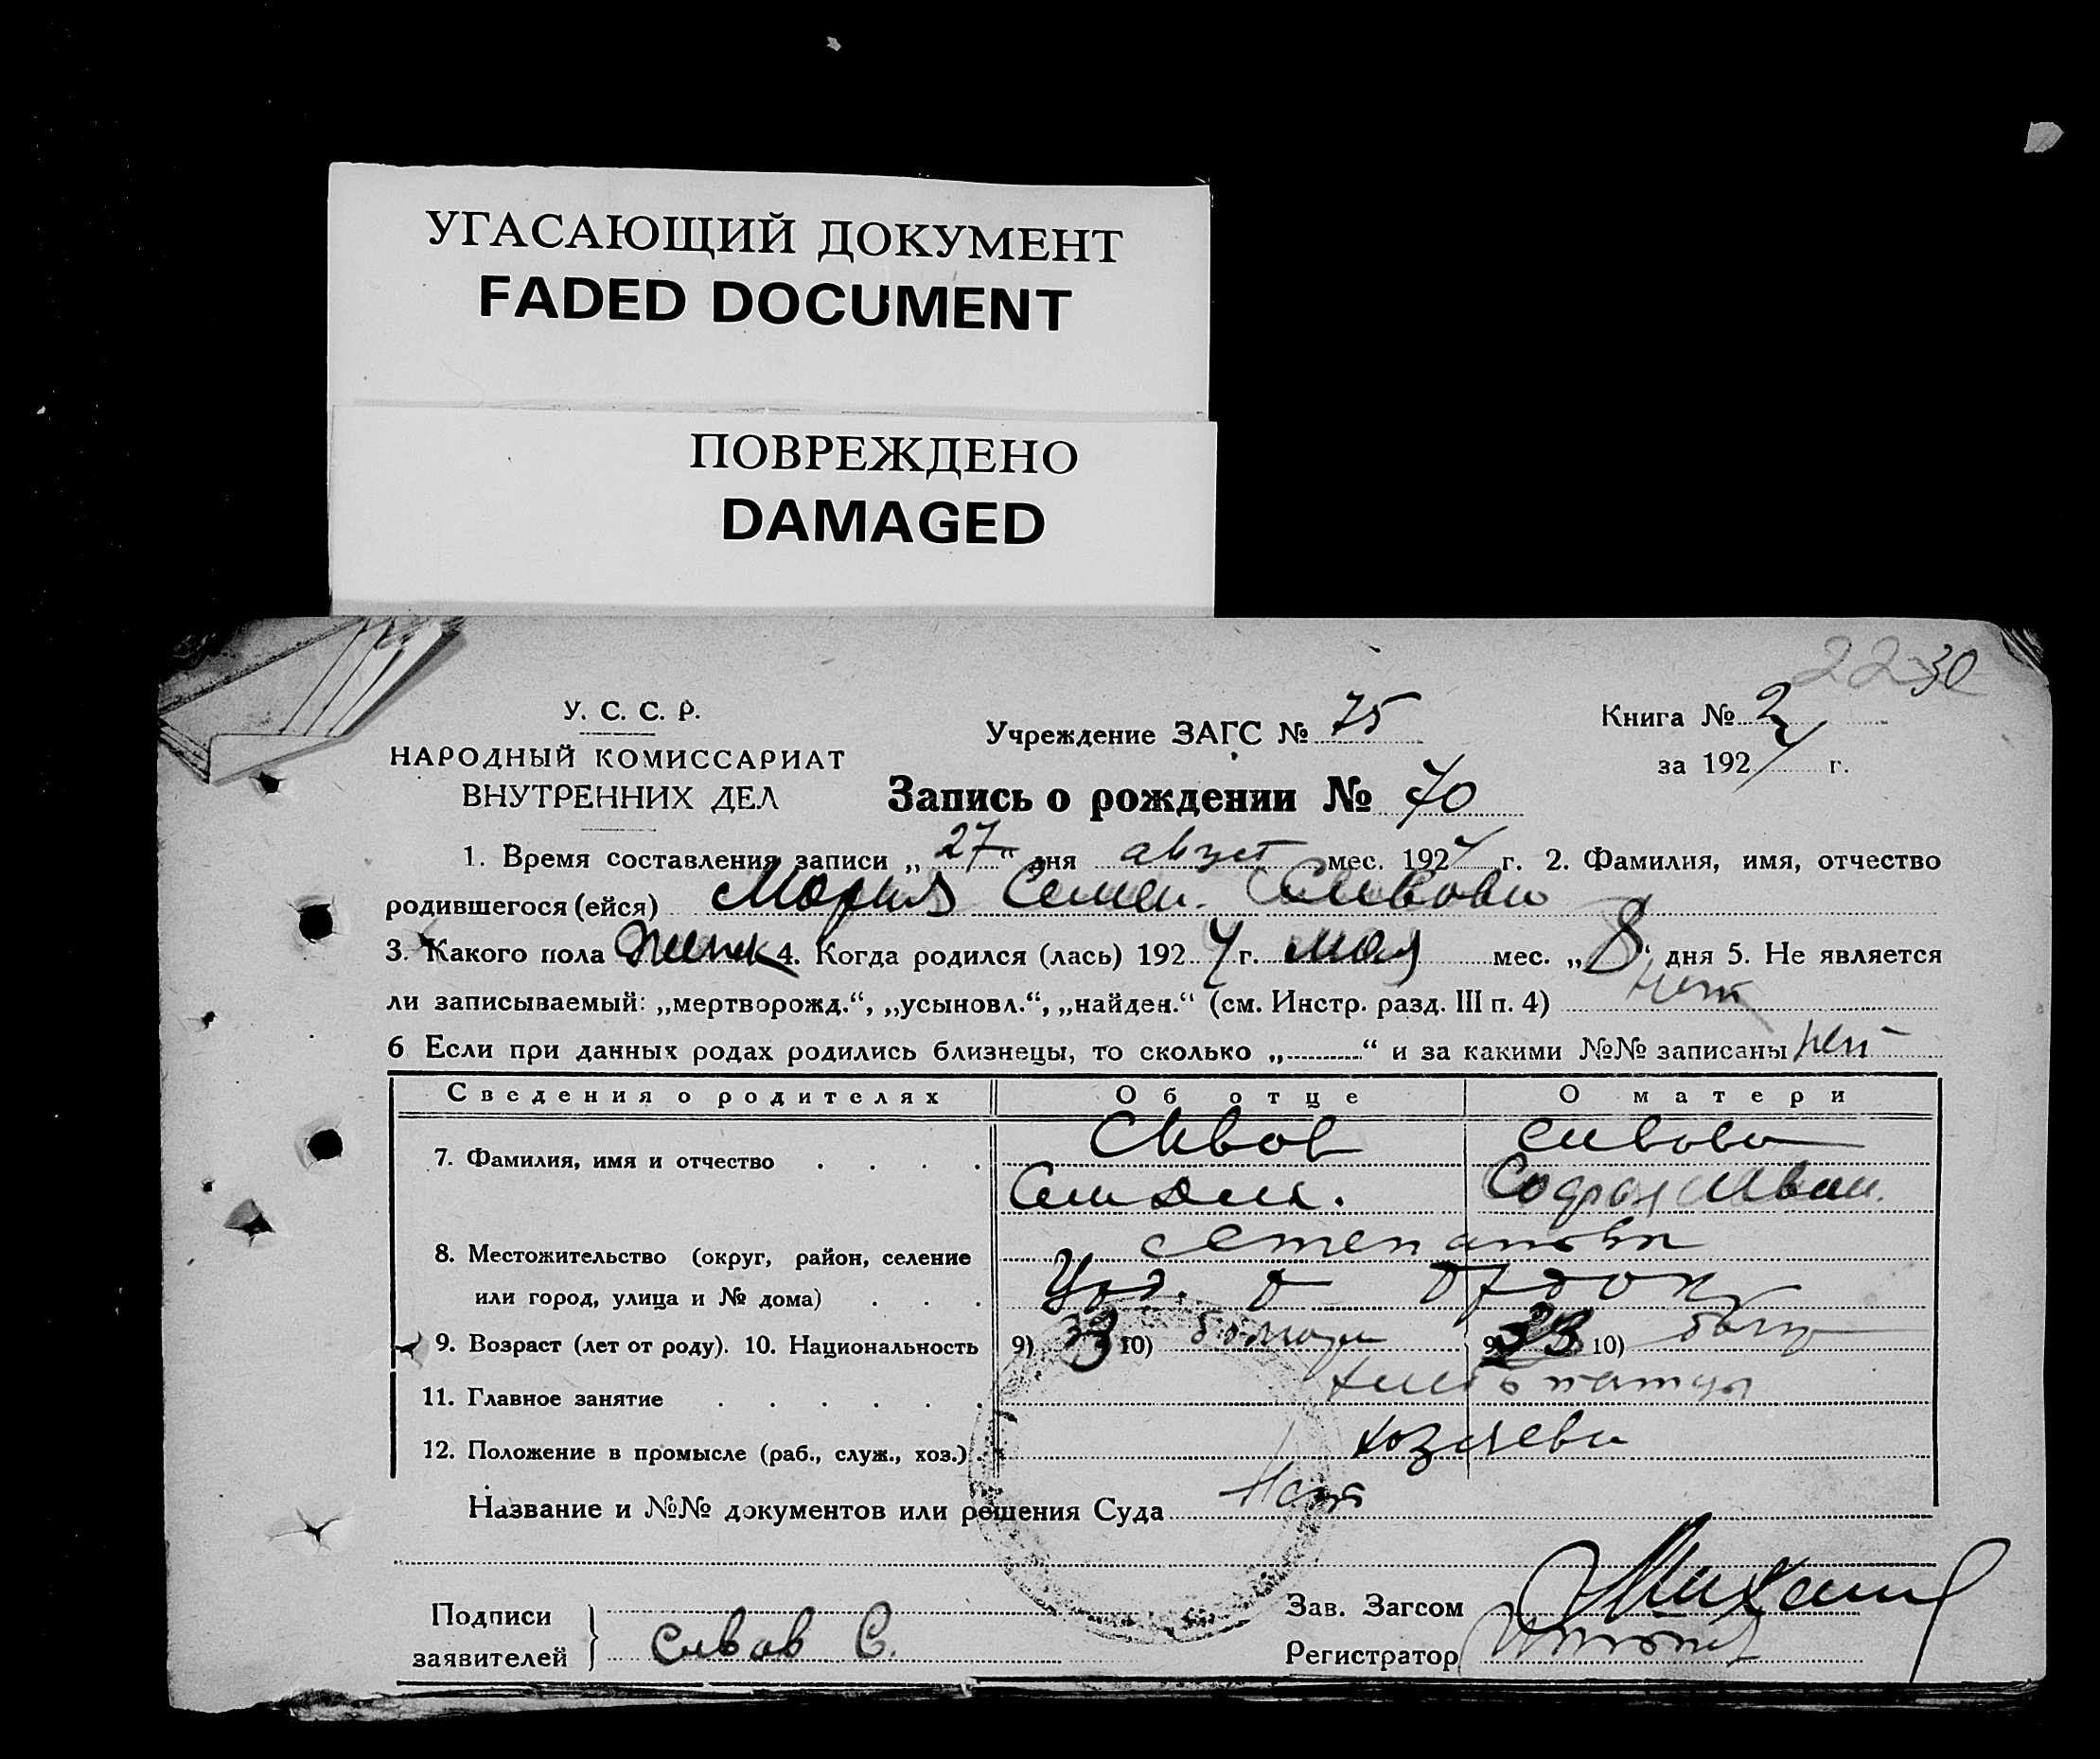 УГАСАЮЩИЙ ДОКУМЕНТ
FADED DOCUMENT
ПОВРЕЖДЕНО
DAMAGED
22 30
У. С. С. Р.
НАРОДНЫЙ КОМИССАРИАТ
ВНУТРЕННИХ ДЕЛ
Учреждение ЗАГС № 75
Книга № 2
за 1924 г.
Запись о рождении № 70
1. Время составления записи „27“ дня август мес. 1924 г. 2. Фамилия, имя, отчество
родившегося (ейся) Мария Семен. Сивова
3. Какого пола женск 4. Когда родился (лась) 1924 г. мая мес. „8“ дня 5. Не является
ли записываемый: „мертворожд.“, „усыновл.“, „найден.“ (см. Инстр. разд. III п. 4) нет
6 Если при данных родах родились близнецы, то сколько „..........“ и за какими №№ записаны нет
Сведения о родителях Об отце О матери
7. Фамилия, имя и отчество Сивов Сивова
София Иван.
8. Местожительство (округ, район, селение
или город, улица и № дома)
9. Возраст (лет от роду). 10. Национальность 9) 33 10) 9) 33 10)
11. Главное занятие
12. Положение в промысле (раб., служ., хоз.) хозяева
Название и №№ документов или решения Суда Нет
Подписи
заявителей
Сивов С.
Зав. Загсом
Регистратор